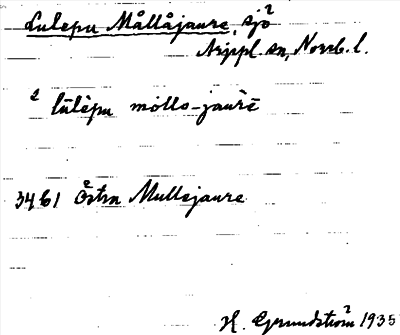 Lulepu Mållåjaure, sjö²
Arjeppl. sn, Norrb. l.
² lūlēpu mōllo-jaurē
3461 Östra Mullejaure
H. Grundström 1935